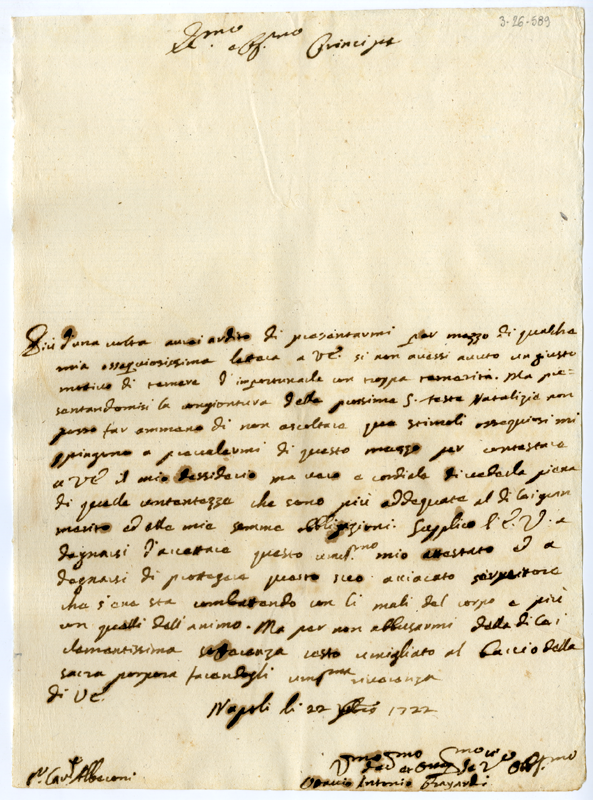 3-26-589
Em.mo e Rev.mo Principe
Più d'una volta avrei ardito di presentarmi per mezzo di qualche
mia ossequiosissima lettera a V.E. si non avessi avuto un giusto
motivo di temere d'importunarle con troppa temerità. Ma pre-
sentandomisi la congiontura delle prossime S. feste Natalizie non
posso far ammeno di non ascoltare que stimoli ossequiosi mi
spingono a prevalermi di questo mezzo per contestare
a V.E. il mio dessiderio ma vero e cordiale di vederla piena
di quelle contentezze che sono più addequate al di Lei gran
merito ed alle mie somme obbligazioni. Supplico l'E.V. a
degnarsi d'accettare questo mio attestato ed a
degnarsi di proteggere questo suo acciacato servitore
che s'ene sta combattendo con li mali del corpo e più
con quelli dell'animo. Ma per non abbusarmi della di Lei
clementissima sofferenza resto umigliato al baccio della
sacra porpora facendogli riverenza
di V.E.
Napoli li 22 1722
Antonio
S.r Car.l Alberoni